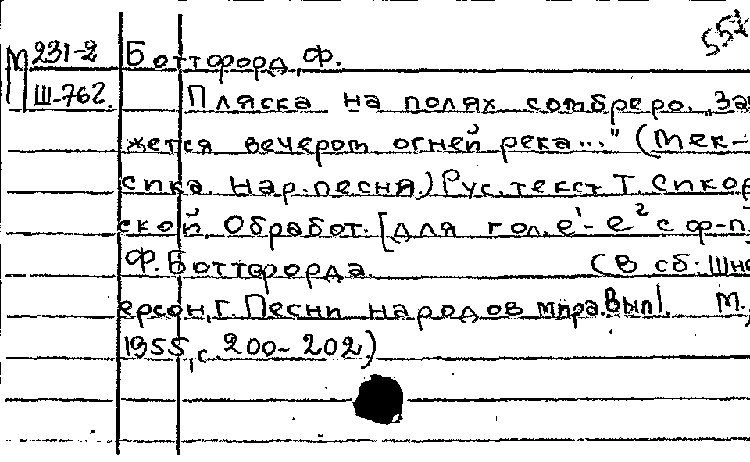 554
М 231-2 Боттфорд, Ф.
Ш-762. Пляска на полях сомбреро. "Заж
жется вечером огней река..." (Мек-
сика. Нар. песня.) Рус. текст Т. Сикор
ской. Обработ. [для гол. e¹-e² с ф-п.
Ф. Боттфорда. (В сб: Шне
ерсон, Г. Песни народов мира. Вып 1. М.,
1955, с. 200-202)